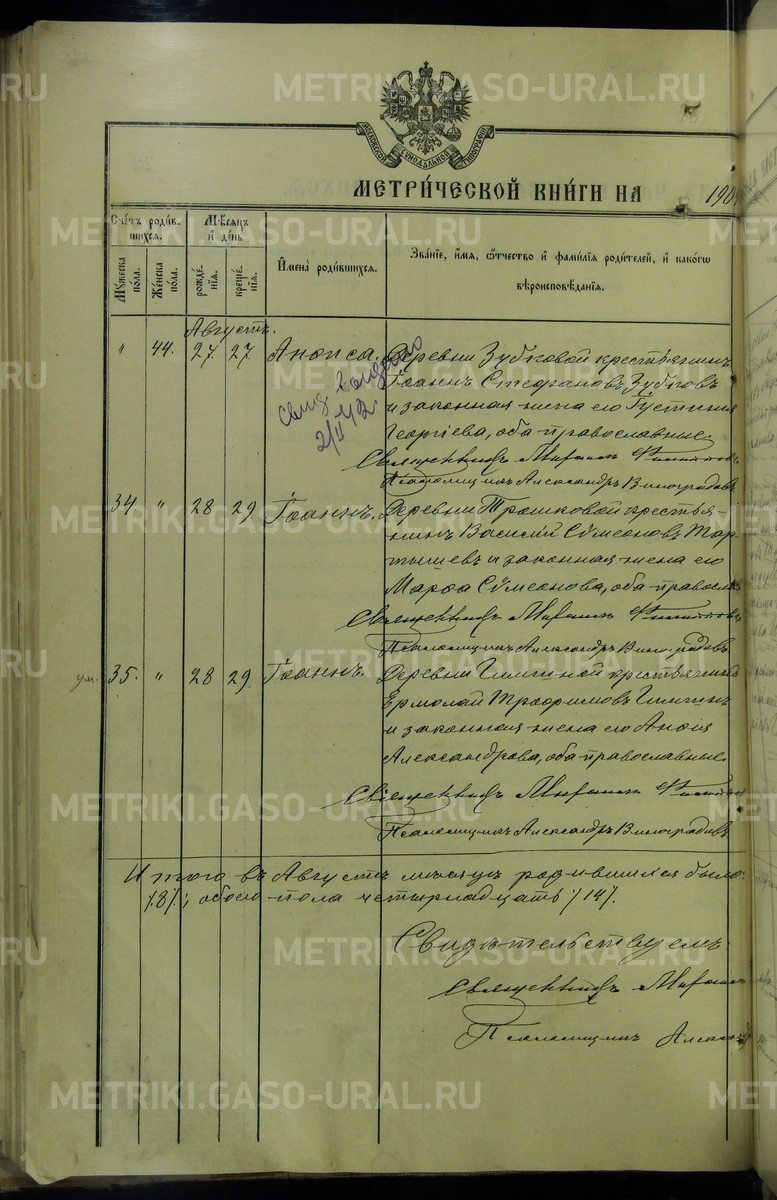 МОСКОВСКОЙ СѴНОДАЛЬНОЙ ТИПОГРАФІИ
МЕТРИ́ЧЕСКОЙ КНИ́ГИ НА 190
Сче́тъ роди́в-
шихся.
Мѣ́сяцъ
и҆ де́нь
Му́жеска
по́ла.
Же́нска
по́ла.
рожде́-
нія.
креще́-
нія.
И҆мена̀ роди́вшихся.
Зва́ніе, и҆́мя, ѻ҆́тчество и҆ фами́лія роди́телей, и҆ како́гѡ
вѣроисповѣ́данія.
Августъ.
" 44. 27 27 Анониса. Деревни Зубковой крестьянинъ
Іоаннъ Стефановъ Зубковъ
и законная жена его Іустинія
Георгіева, оба православные.
Священникъ
Псаломщикъ Александръ Виноградовъ
Свид
2/II 42
34 " 28 29 Іоаннъ. Деревни Трошковой крестья-
нинъ Василій Сѵмеоновъ Мар-
тышевъ и законная жена его
Марѳа Сѵмеонова, оба правосла
Священникъ
Псаломщикъ Александръ Виноградовъ
ум. 35. " 28 29. Іоаннъ. Деревни крестьянинъ
Ермолай Трофимовъ
и законная жена его
Александрова, оба православные.
Священникъ
Псаломщикъ Александръ Виноградовъ
Итого въ Августѣ мѣсяцѣ родившихся было:
/8/; обоего пола четырнадцать /14/.
Свидѣтельствуемъ:
Священникъ
Псаломщикъ Александ
METRIKI.GASO-URAL.RU